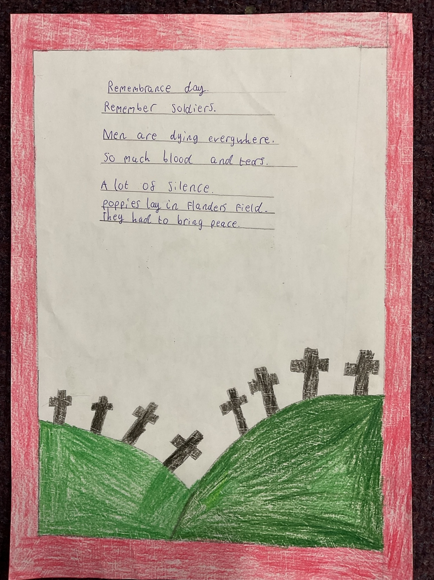 Remembrance day.
Remember soldiers.
Men are dying everywhere.
So much blood and tears.
A lot of silence.
Poppies lay in Flanders Field.
They had to bring peace.